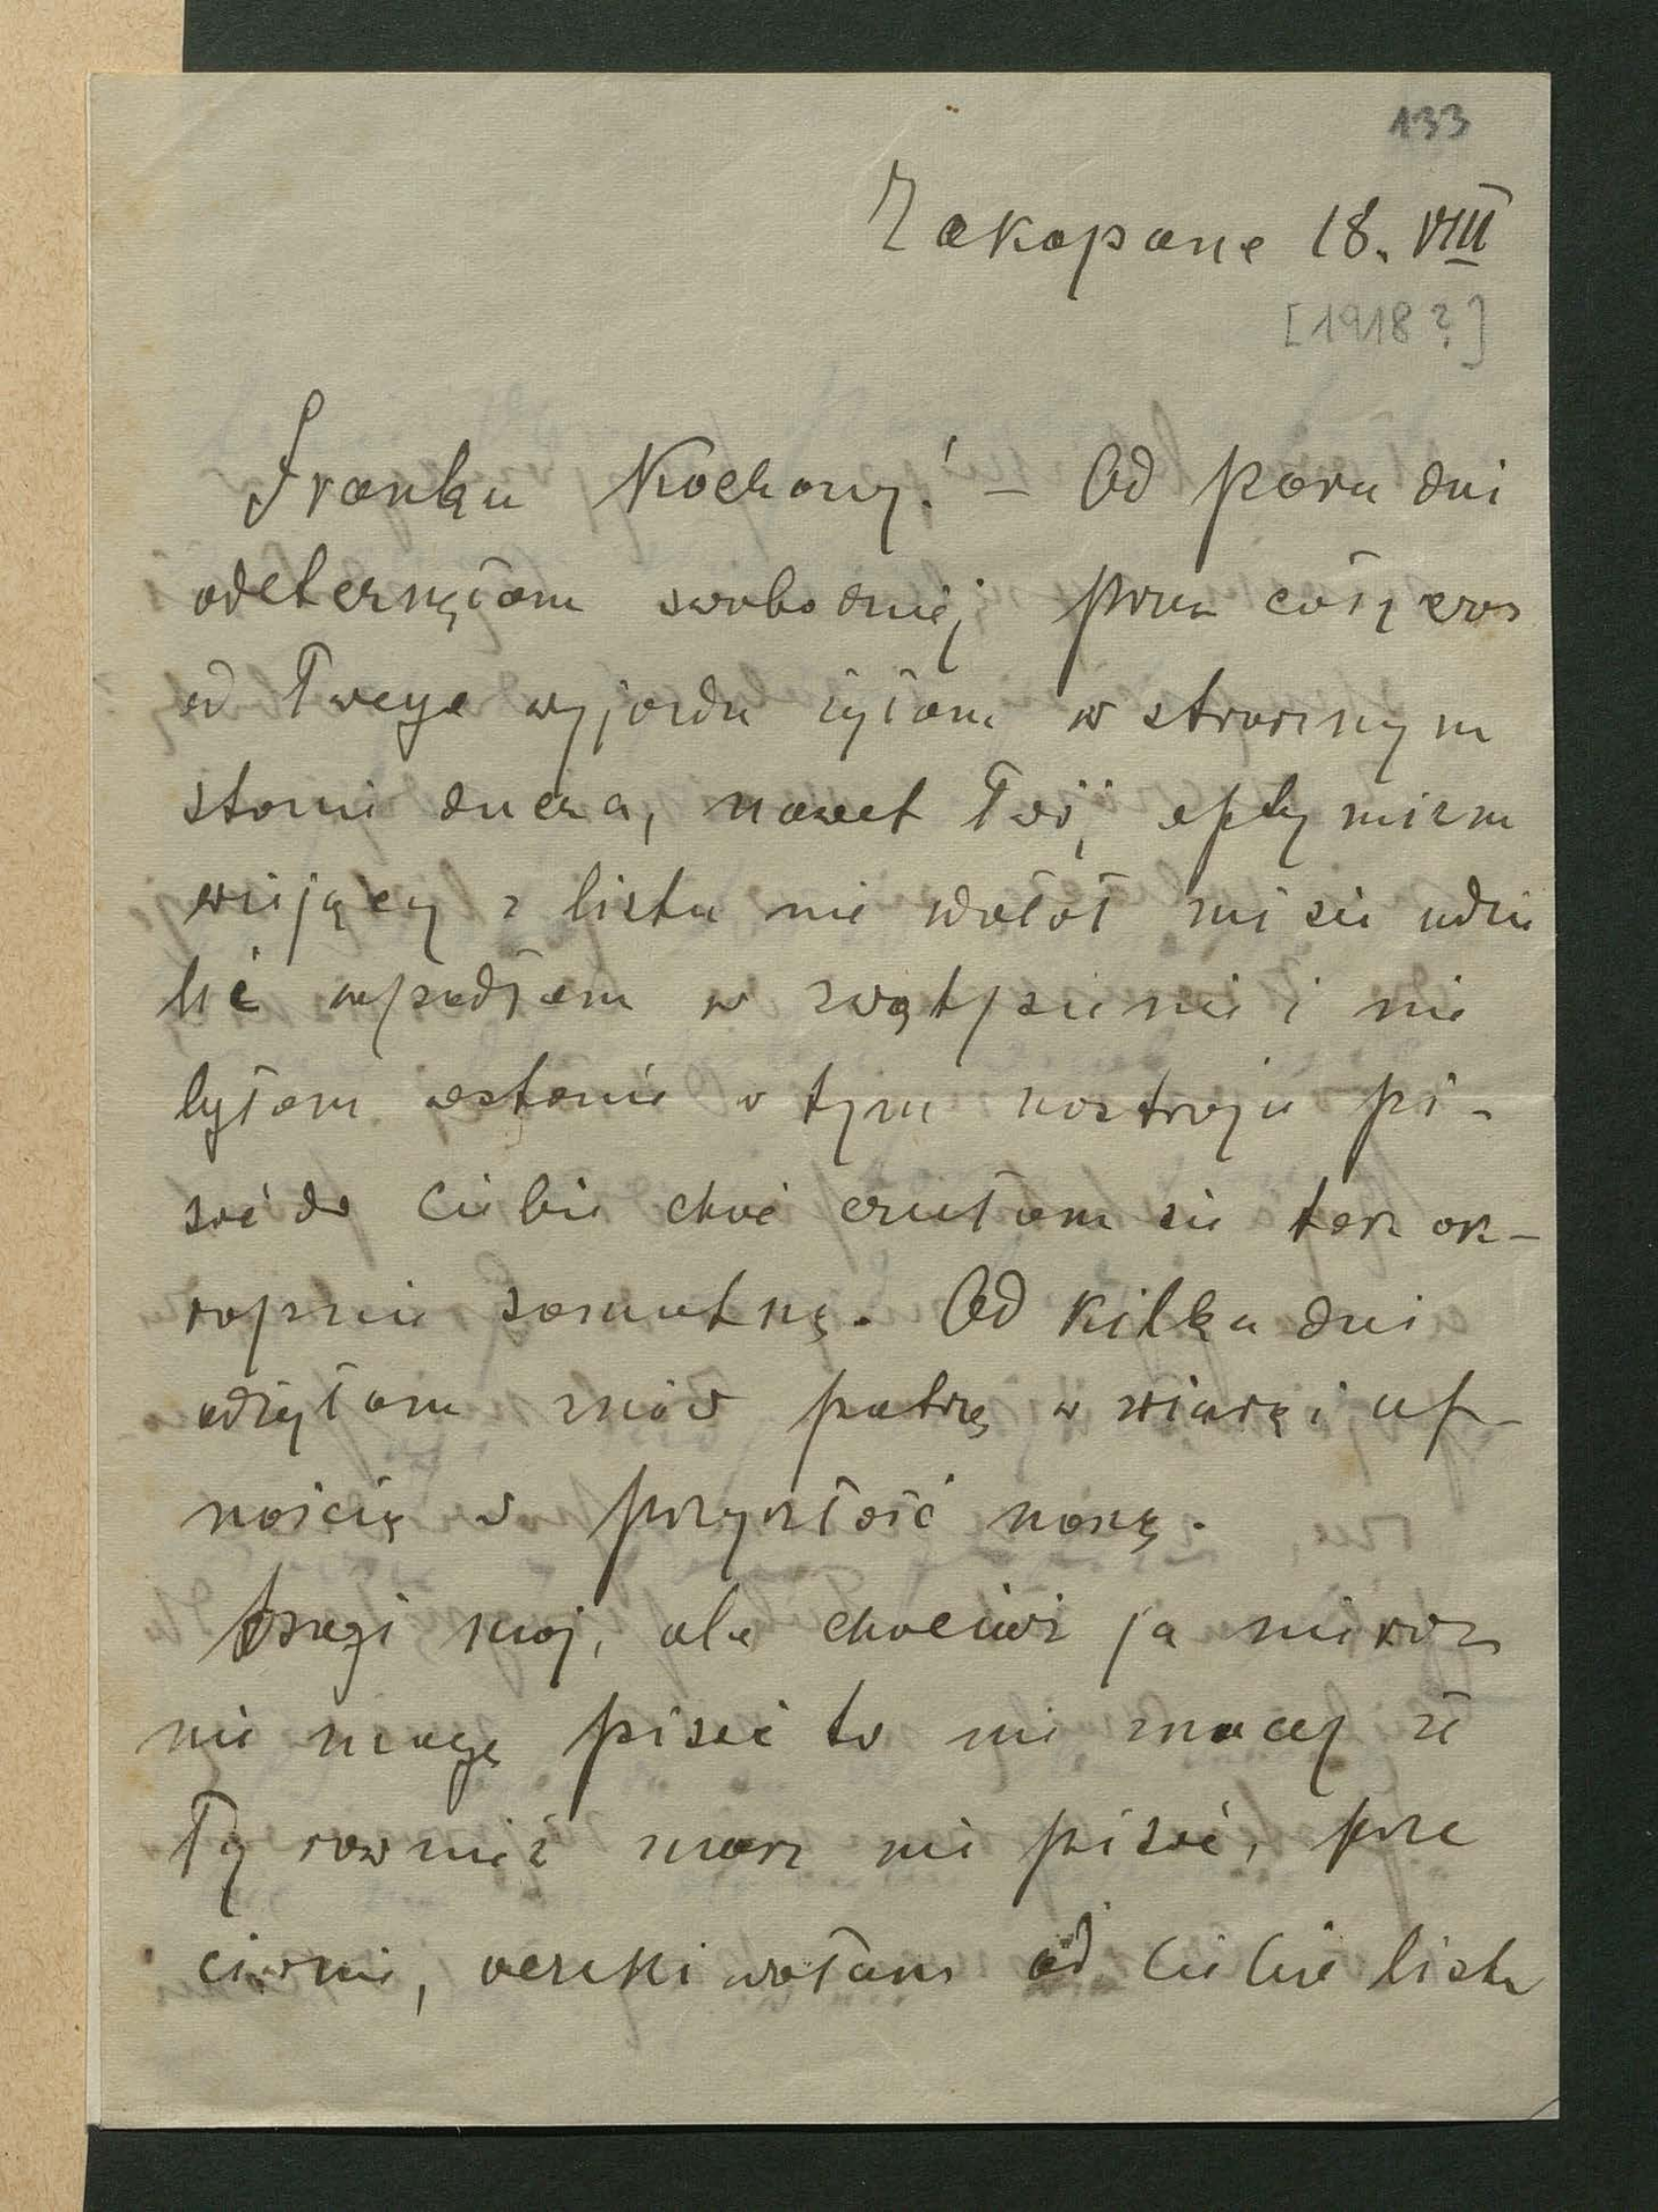 133
Zakopane 18. VIII
[1918?]
Franku Kochany! — Od paru dni
odetchnęłam swobodniej, przez cały czas
od Twego wyjazdu żyłam w strasznym
stanie ducha, nawet Twój optymizm
wiejący z listu nie zdołał mi się udzie
lić wpadłam w zwątpienie i nie
byłam wstanie w tym nastroju pi-
sać do Ciebie choć czułam się tak ok-
ropnie samotną. Od kilku dni
odżyłam znów patrzę w wiarę i uf-
nością w przyszłość naszą.
Drogi mój, ale chociaż ja nieraz
nie mogę pisać to nie znaczy że
Ty również masz nie pisać, prze
ciwnie, oczekiwałam od Ciebie listu